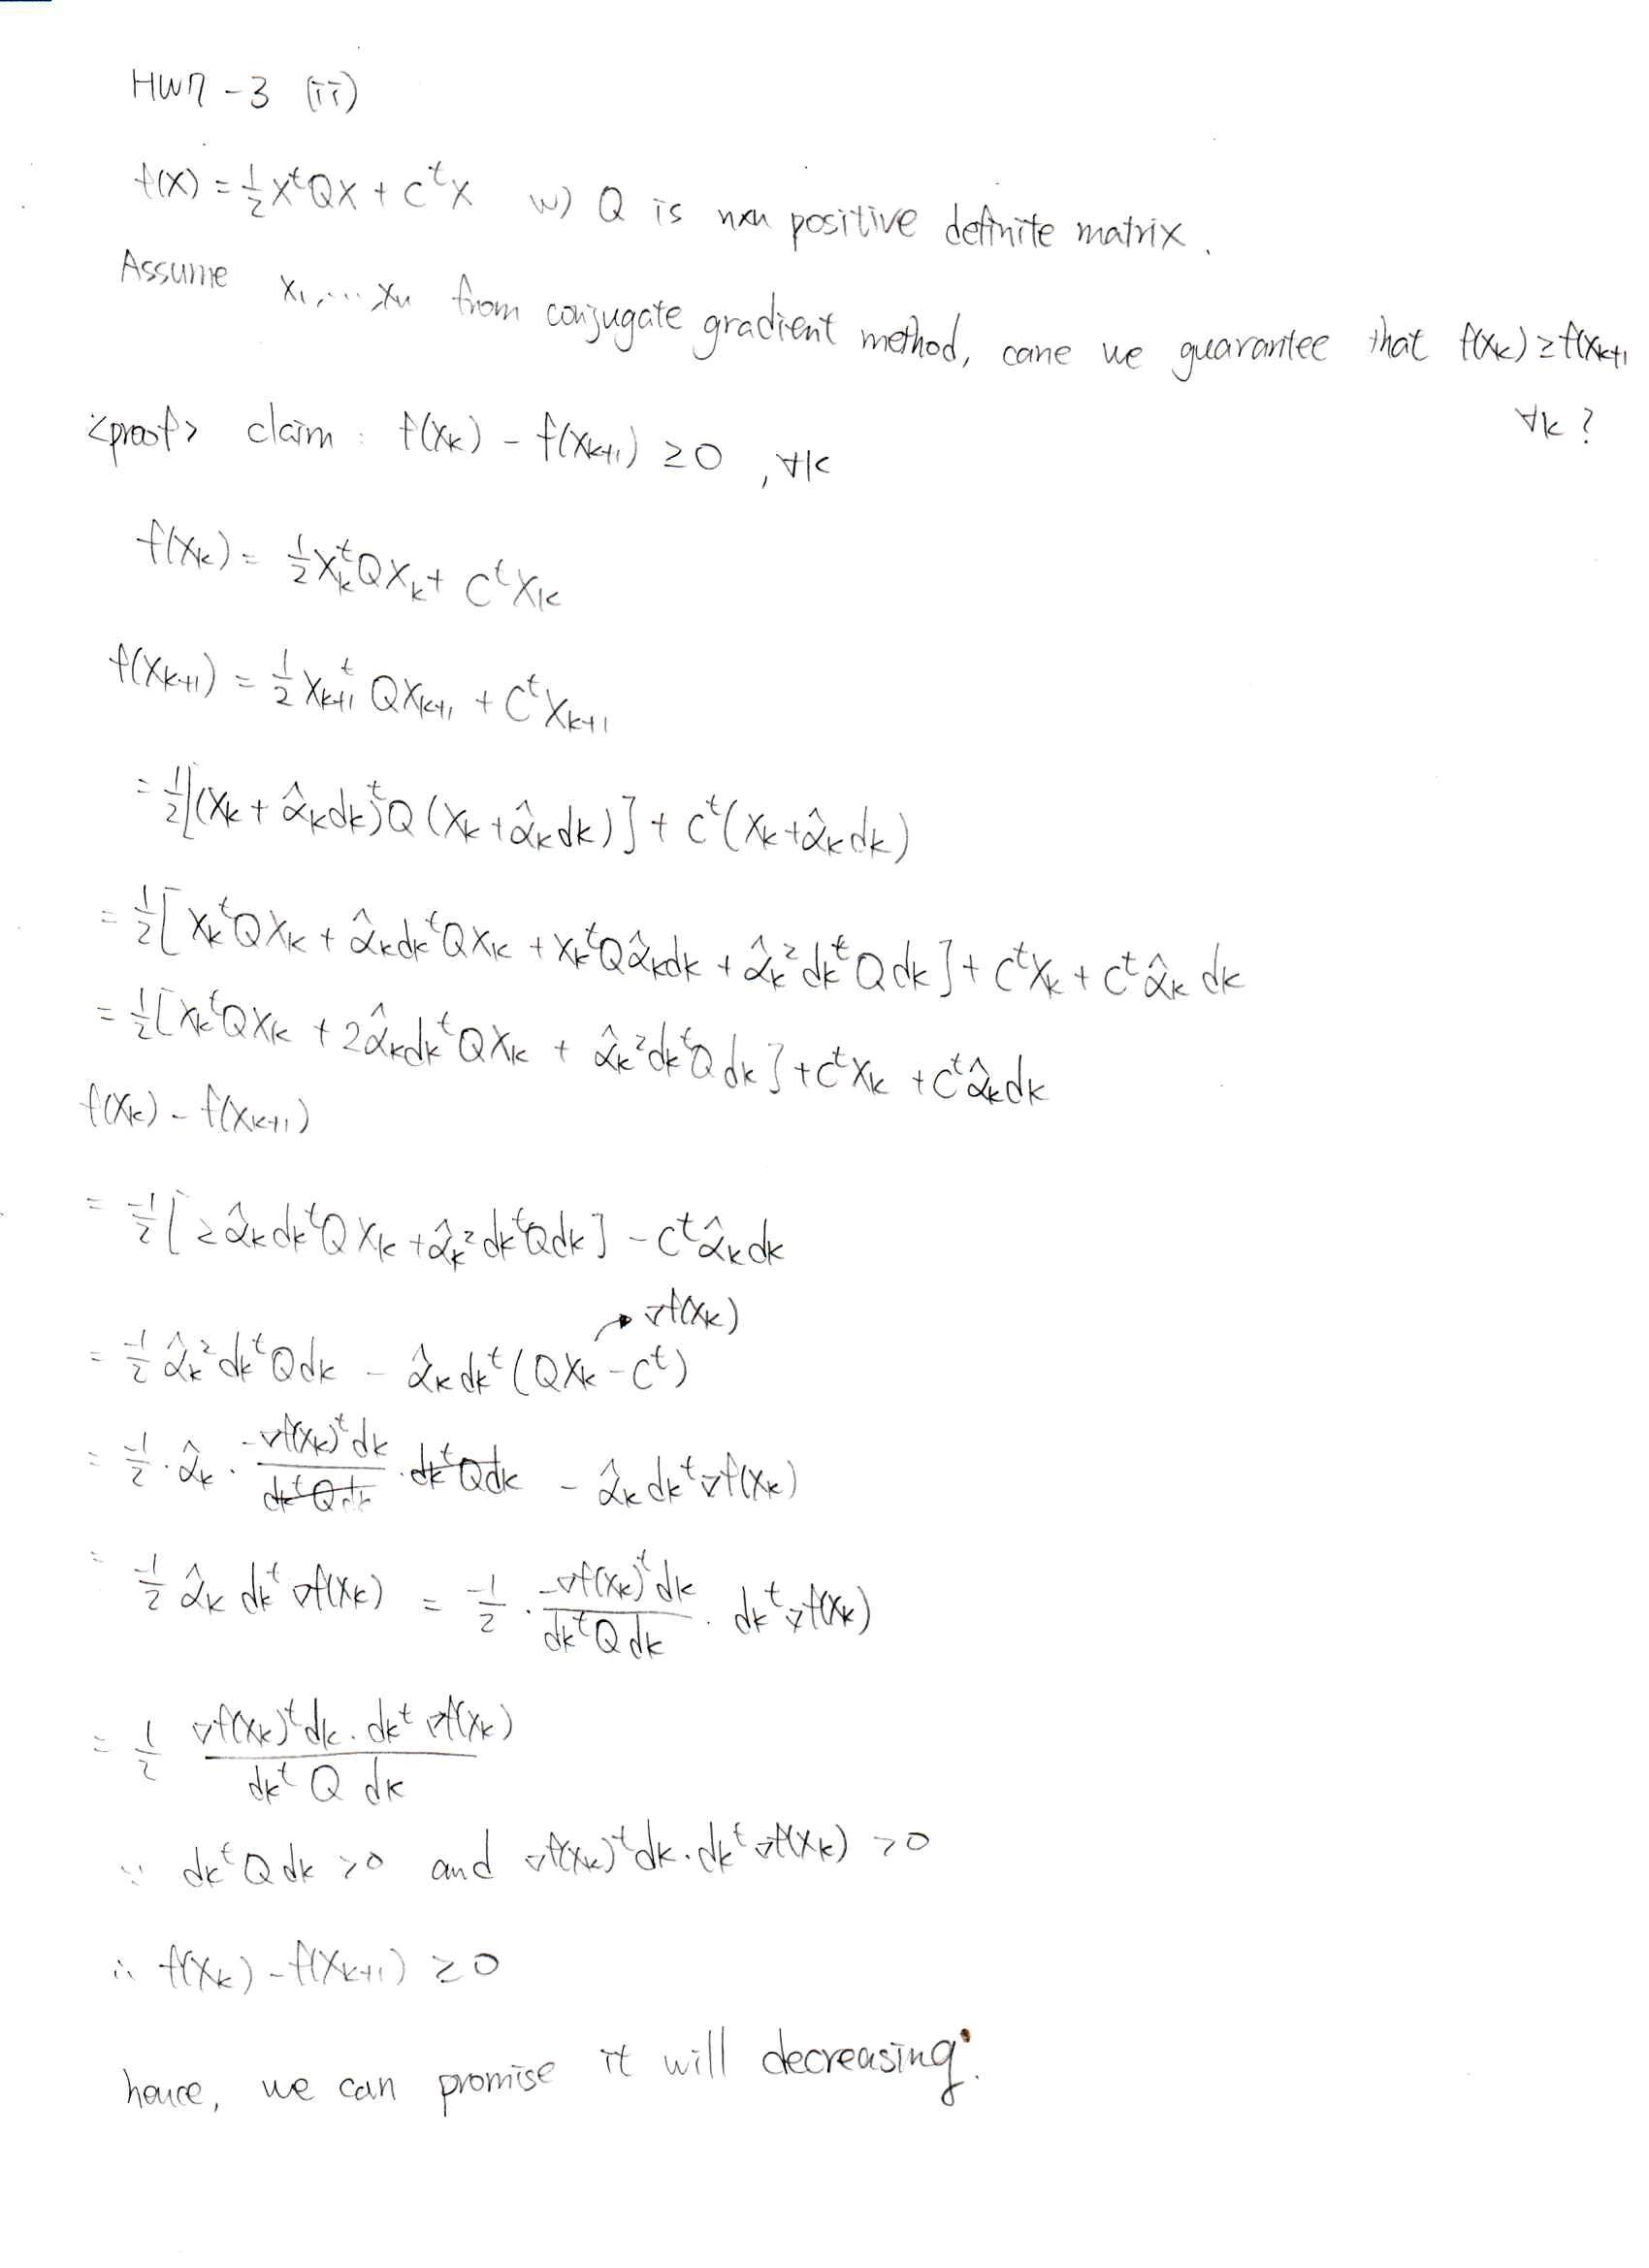 HW7-3 (ii)
f(x) = 1/2 x^t Q x + c^t x w) Q is n×n positive definite matrix.
Assume x_1, ... x_n from conjugate gradient method, cane we guarantee that f(x_k) ≥ f(x_{k+1}
∀k ?
<proof> claim : f(x_k) - f(x_{k+1}) ≥ 0 , ∀k
f(x_k) = 1/2 x_k^t Q x_k + c^t x_k
f(x_{k+1}) = 1/2 x_{k+1}^t Q x_{k+1} + c^t x_{k+1}
= 1/2 [(x_k + α̂_k d_k)^t Q (x_k + α̂_k d_k)] + c^t (x_k + α̂_k d_k)
= 1/2 [x_k^t Q x_k + α̂_k d_k^t Q x_k + x_k^t Q α̂_k d_k + α̂_k^2 d_k^t Q d_k] + c^t x_k + c^t α̂_k d_k
= 1/2 [x_k^t Q x_k + 2 α̂_k d_k^t Q x_k + α̂_k^2 d_k^t Q d_k] + c^t x_k + c^t α̂_k d_k
f(x_k) - f(x_{k+1})
= -1/2 [2 α̂_k d_k^t Q x_k + α̂_k^2 d_k^t Q d_k] - c^t α̂_k d_k
→ ∇f(x_k)
= -1/2 α̂_k^2 d_k^t Q d_k - α̂_k d_k^t (Q x_k - c^t)
= -1/2 · α̂_k · (-∇f(x_k)^t d_k)/(d_k^t Q d_k) · d_k^t Q d_k - α̂_k d_k^t ∇f(x_k)
= -1/2 α̂_k d_k^t ∇f(x_k) = -1/2 · (-∇f(x_k)^t d_k)/(d_k^t Q d_k) · d_k^t ∇f(x_k)
= 1/2 (∇f(x_k)^t d_k · d_k^t ∇f(x_k))/(d_k^t Q d_k)
∵ d_k^t Q d_k > 0 and ∇f(x_k)^t d_k · d_k^t ∇f(x_k) > 0
∴ f(x_k) - f(x_{k+1}) ≥ 0
hence, we can promise it will decreasing.